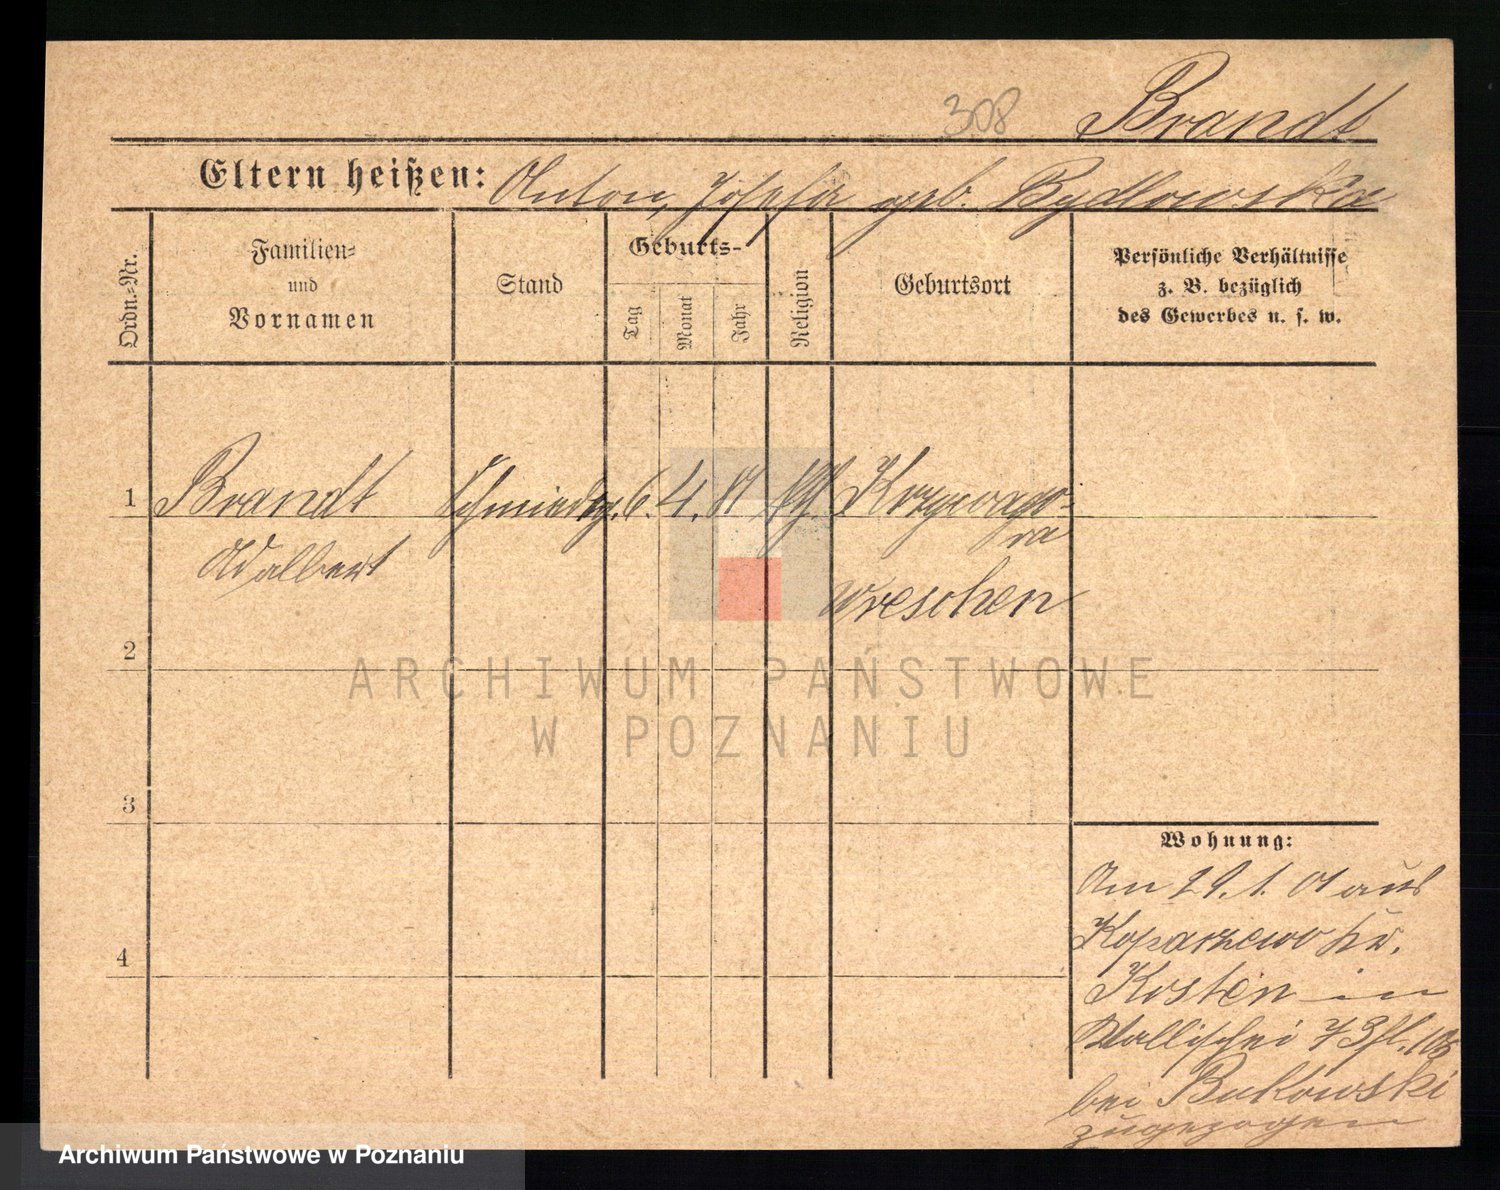 308 Brandt
Eltern heißen: Anton, Josefa geb. Bydlowska
Ordn.-Nr.
Familien-
und
Vornamen
Stand
Geburts-
Tag
Monat
Jahr
Religion
Geburtsort
Persönliche Verhältnisse
z. B. bezüglich
des Gewerbes u. s. w.
1 Brandt 6. 4. 81
Adalbert
Wreschen
2
ARCHIWUM PAŃSTWOWE
W POZNANIU
3
Wohnung:
Am 29. 1. 01 aus
Koparzewo Kr.
4
Kosten in
Wallischei 73
bei Bukowski
zugezogen
Archiwum Państwowe w Poznaniu